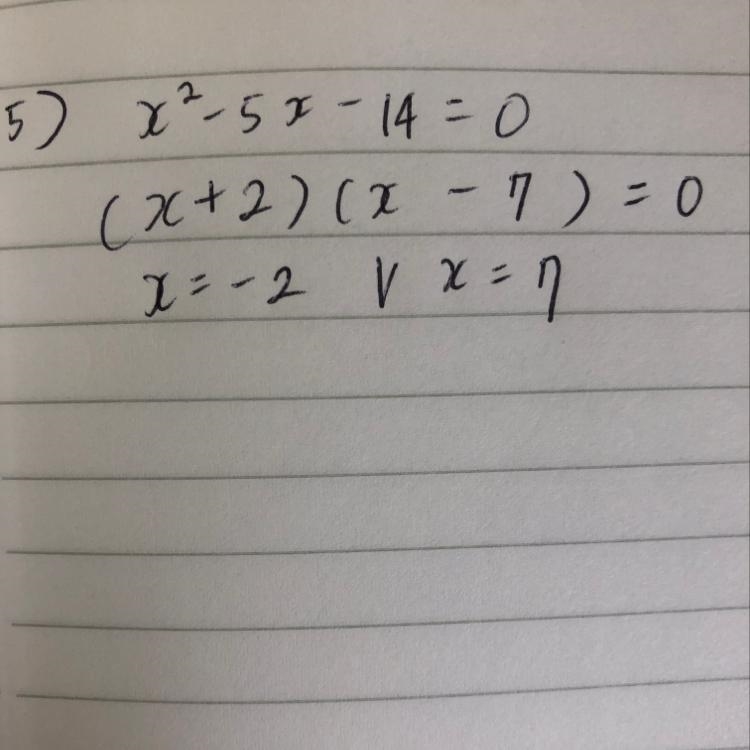 5) x² - 5x - 14 = 0
(x + 2)(x - 7) = 0
x = -2 V x = 7